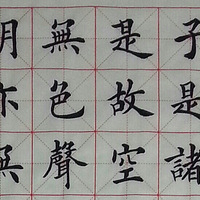 子是諸
是故空
無色聲
明亦無